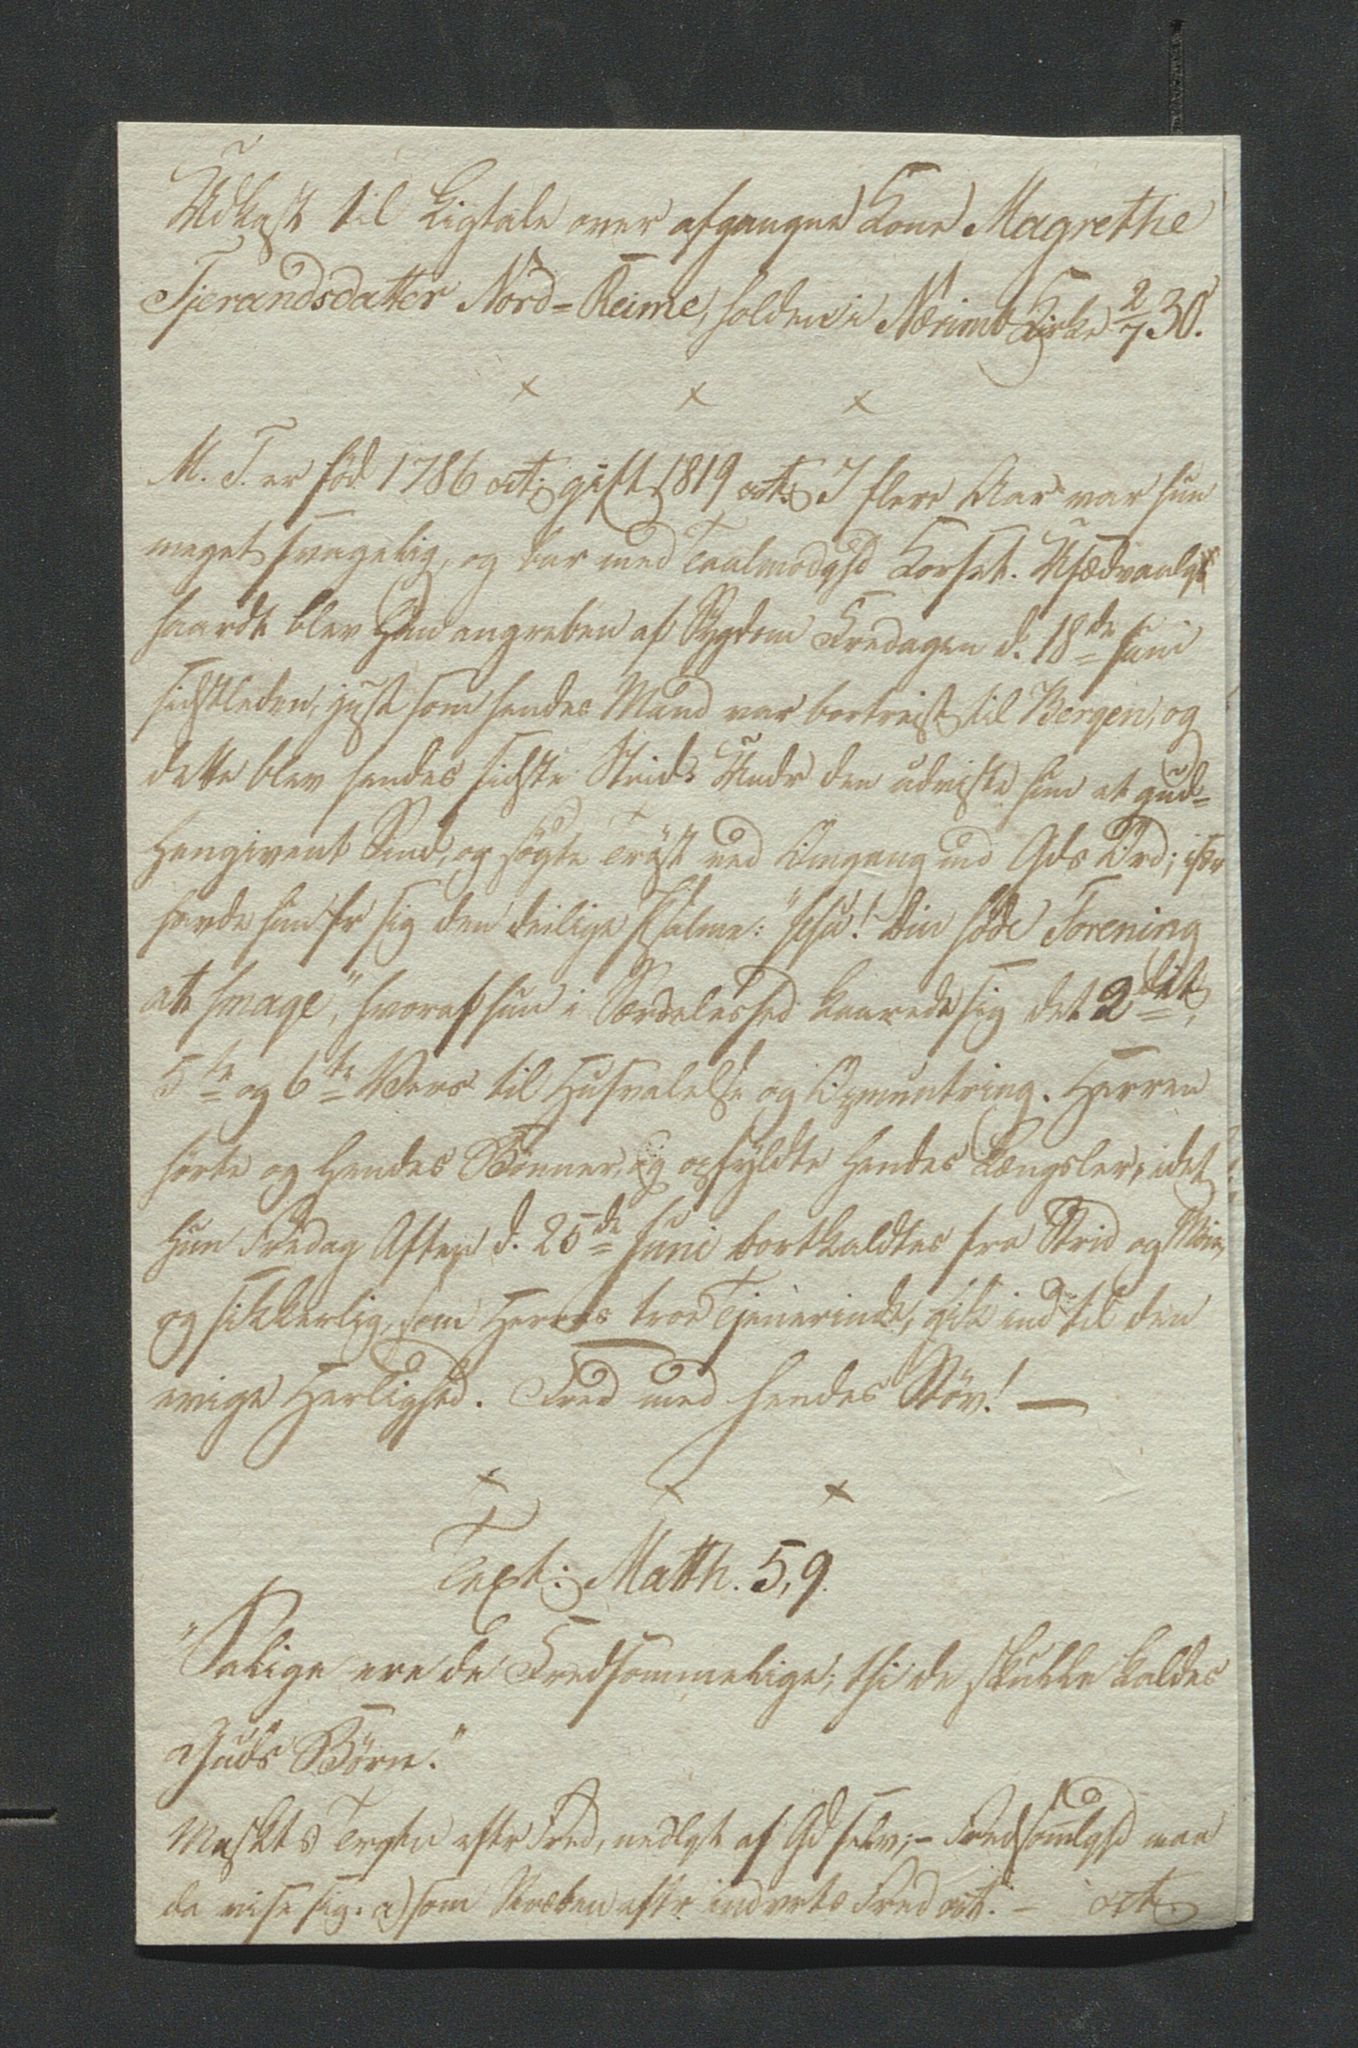 Udkast til Ligtale over afgangne Kone Magrethe
Tjerandsdatter Nord=Reime, holden i Nærimb Kirke 2/7 30.
× × ×
M. T. er föd 1786 oct: gift 1819 oct: I flere Aar var hun
meget svagelig, og bar med Taalmodghd Korset. Usædvanlgt
haardt blev Hun angreben af Sygdom Fredagen d. 18de Juni
sidstleden, just som hendes Mand var bortreist til Bergen, og
dette blev hendes sidste Strid. Undr den udviste hun et gud=
hengivent Sind, og søgte Trøst ved Omgang md Gds Ord; især
havde hun fr sig den deilige Psalme: "Jesu! Din söde Forening
at smage", hvoraf hun i Særdeleshed kaarede sig det 2det,
5te og 6te Vers til Husvalelse og Opmuntring. Herren
hörte og Hendes Bönner, og opfyldte Hendes Længsler, idet
Hun Fredag Aften d. 25de Juni bortkaldtes fra Strid og Møie,
og sikkerlig, som Herrens troe Tjenerinde, gik ind til den
evige Herlighed. Fred med hendes Støv! —
× × ×
Text: Matth. 5,9.
"Salige ere de Fredsommelige; thi de skulle kaldes
Guds Börn."
Mnskts Trgtn eftr Fred, nedlgt af Gd selv; – Fredsomlghd maa
da vise sig. a) som Stræben eftr indvrts Fred oct. – oct.